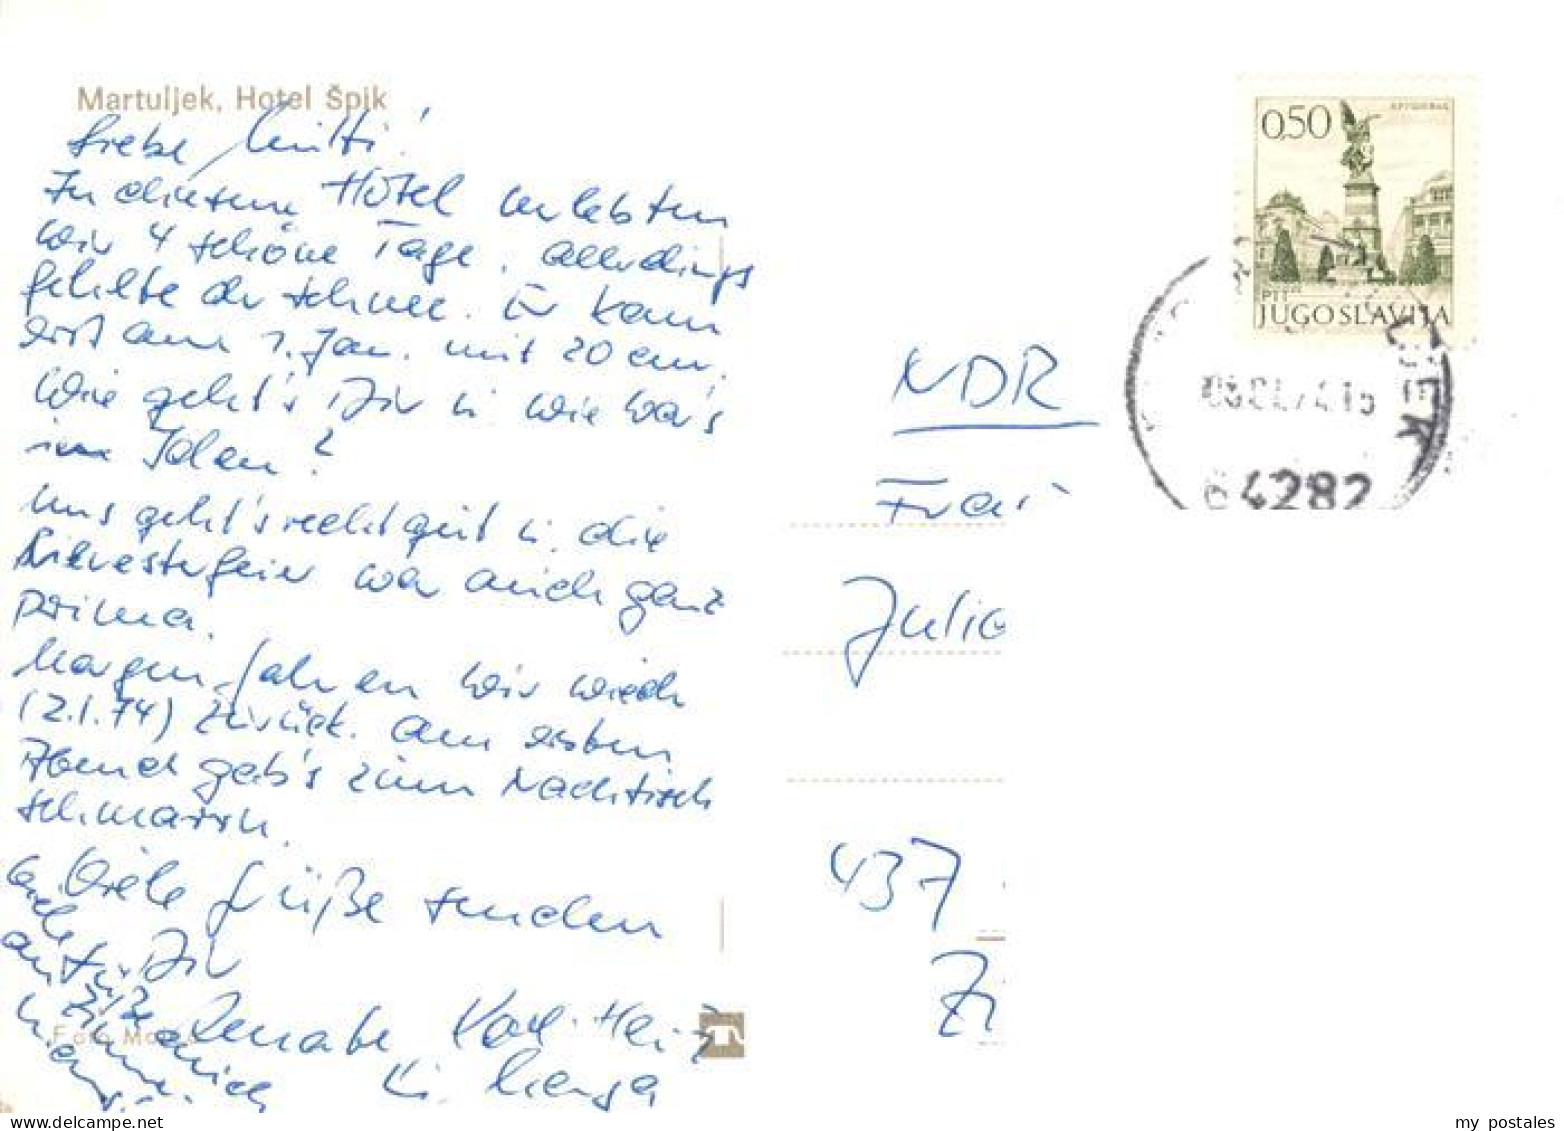 Martuljek, Hotel Špik
Liebe Mutti!
In diesem Hotel verlebten
wir 4 schöne Tage, allerdings
fehlte der Schnee. Er kam
erst am 1. Jan. mit 20 cm.
Wie geht's Dir u. wie war's
in Polen?
Uns geht's recht gut u. die
Silvesterfeier war auch ganz
prima.
Morgen fahren wir wieder
(2.1.74) zurück. Am ersten
Abend gab's zum Nachtisch
Schmarrn.
Viele Grüße senden
Dir
Renate Karl-Heinz
u.
viele
Grüße
auch
Foto
0,50
КРУШЕВАЦ
PTT
JUGOSLAVIJA
64282
NDR
Frau
Julia
437
Zi
my postales
www.delcampe.net